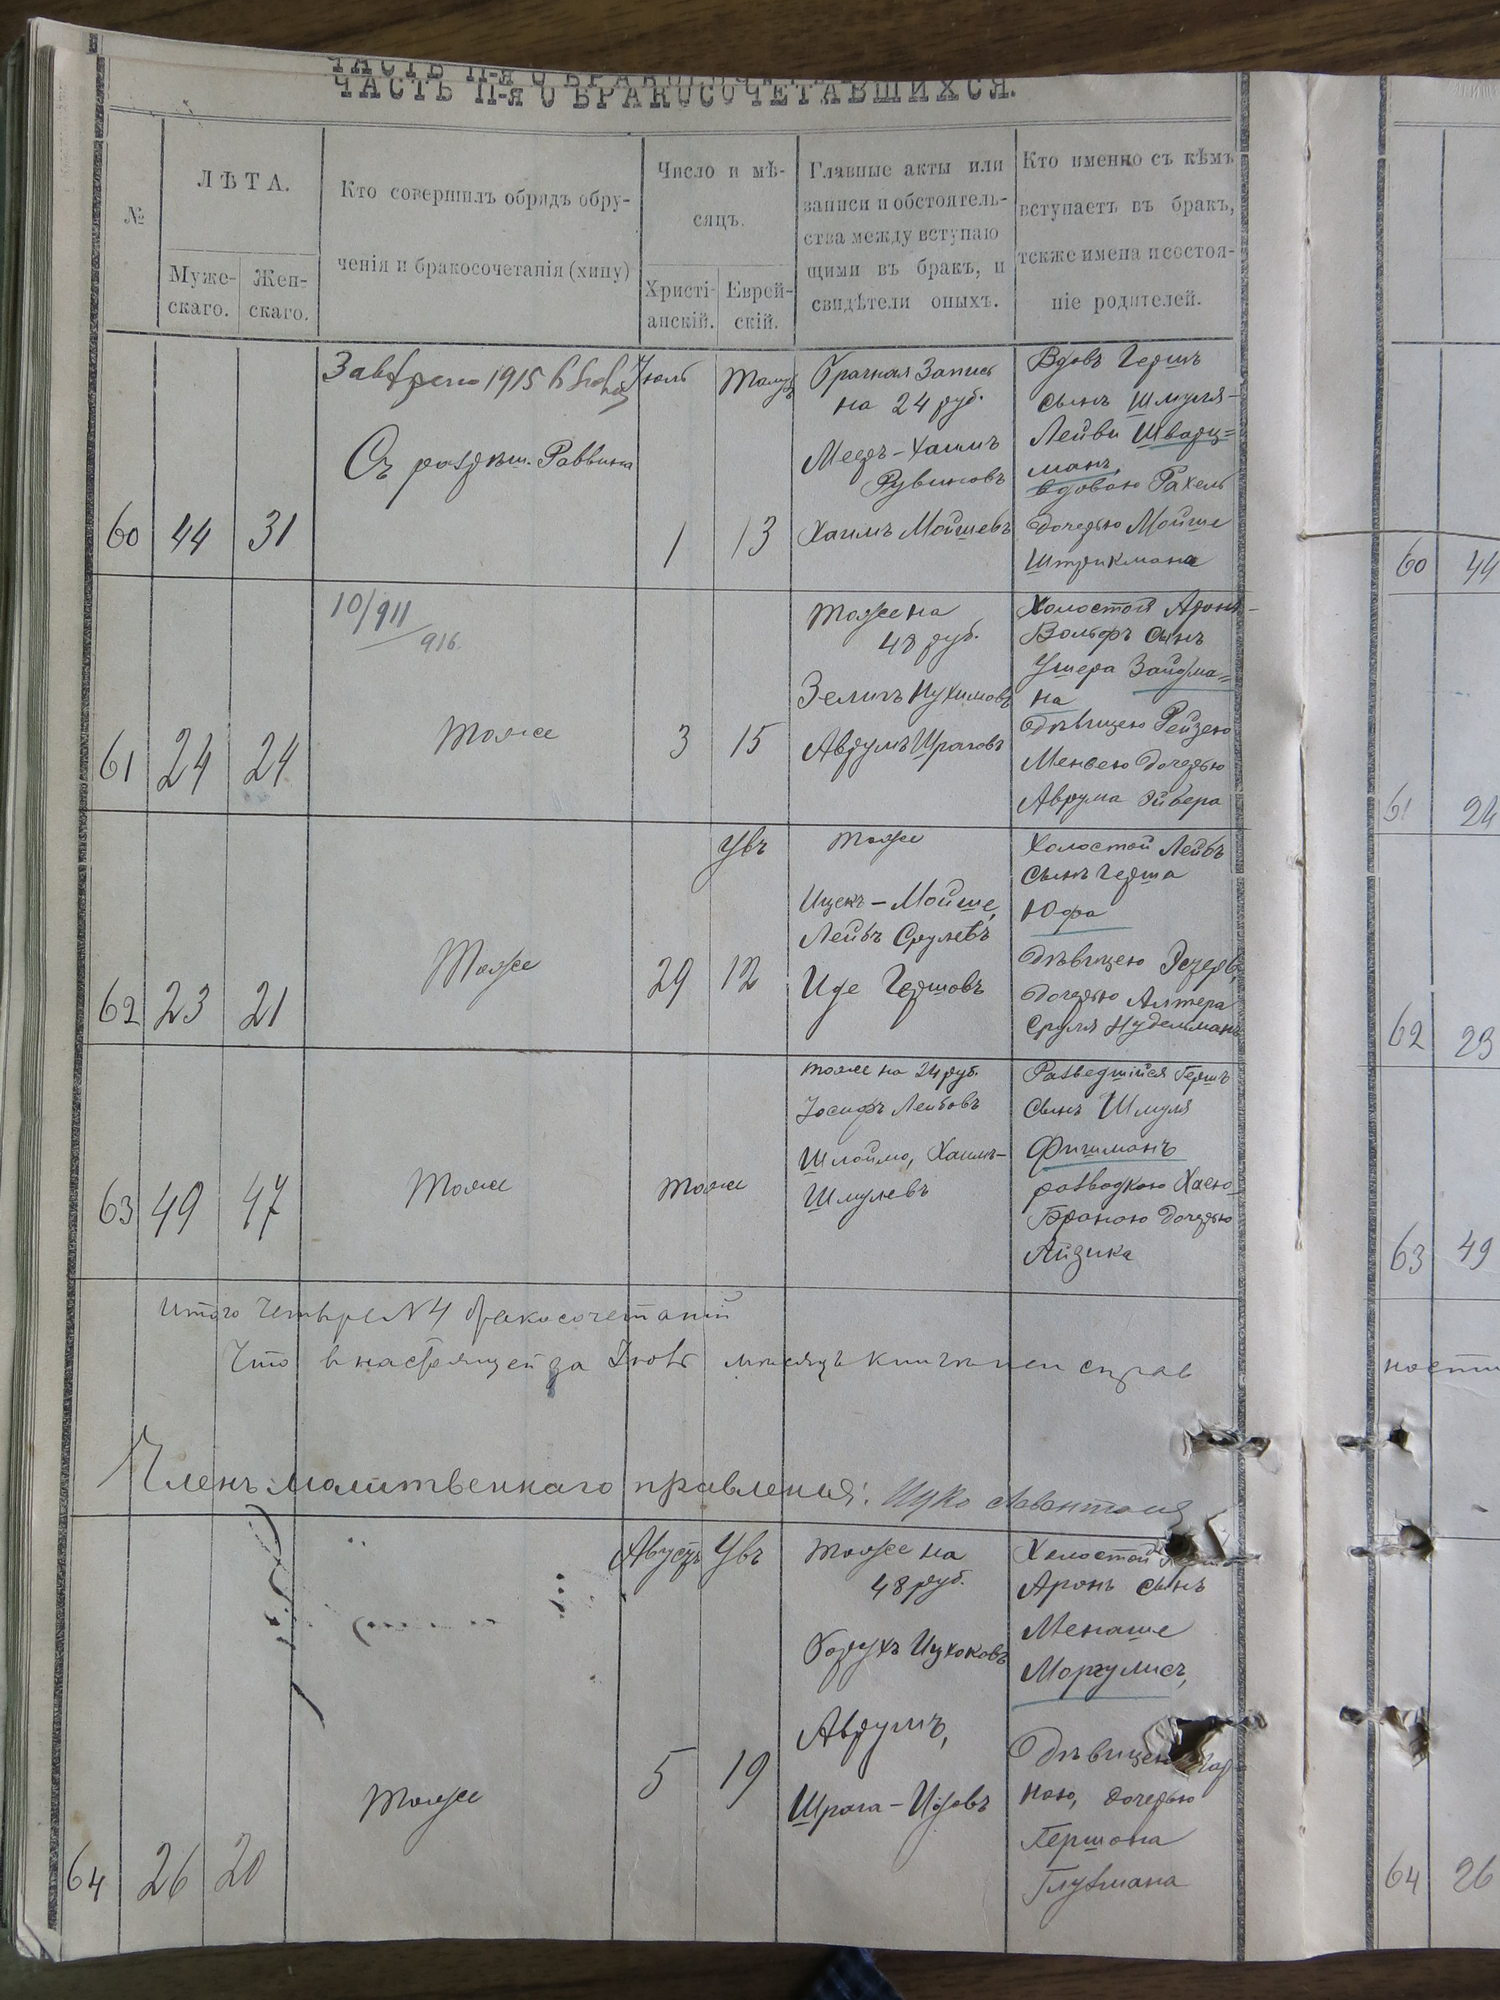 ЧАСТЬ II-я О БРАКОСОЧЕТАВШИХСЯ.
№
ЛѢТА.
Муже-
скаго.
Жен-
скаго.
Кто совершилъ обрядъ обру-
ченія и бракосочетанія (хипу)
Число и мѣ-
сяцъ.
Христі-
анскій.
Еврей-
скій.
Главные акты или
записи и обстоятель-
ства между вступаю
щими въ бракъ, и
свидѣтели оныхъ.
Кто именно съ кѣмъ
вступаетъ въ бракъ,
также имена и состоя-
ніе родителей.
60
44
31
1915
Съ разрѣш. Раввина
Іюль
1
13
Брачная Запись
на 24 руб.
Мееръ-Хаимъ
Рувиновъ
Хаимъ Мойшевъ
Вдовъ Гершъ
сынъ Шмуля-
Лейви Шварц=
манъ,
вдовою Рахель
дочерью Мойше
Штрикмана
61
24
24
10/911
916.
Тоже
3
15
Тоже на
48 руб.
Зелигъ Нухимовъ
Аврумъ Шраговъ
Холостой Аронъ-
Вольфъ сынъ
Ушера Зайдма=
на
дѣвицею Рейзею
Менею дочерью
Аврума
62
23
21
Тоже
29
Увъ
12
Тоже
Ицекъ-Мойше,
Лейбъ Срулевъ
Иде Гершовъ
Холостой Лейбъ
сынъ Герша
Юфа
дѣвицею
дочерью Алтера
Сруля Нудельманъ
63
49
47
Тоже
Тоже
Тоже на 24 руб.
Іосифъ Лейбовъ
Шлоймо, Хаимъ-
Шмулевъ
Разведшійся Гершъ
сынъ Шмуля
Фишманъ
разводкою Хаею-
Браною дочерью
Айзика
Итого четыре N 4 бракосочетаній
Что въ настоящей за Іюль мѣсяцъ книгѣ
Членъ молитвеннаго правленія: Ицко
64
26
20
Тоже
Августъ
5
Увъ
19
Тоже на
48 руб.
Борухъ Ицковъ
Аврумъ,
Шрага-
Холостой
Аронъ сынъ
Менаше
Моргулисъ,
Дѣвицею
ною, дочерью
Гершона
Глузмана
60
44
61
24
62
23
63
49
ности
64
26